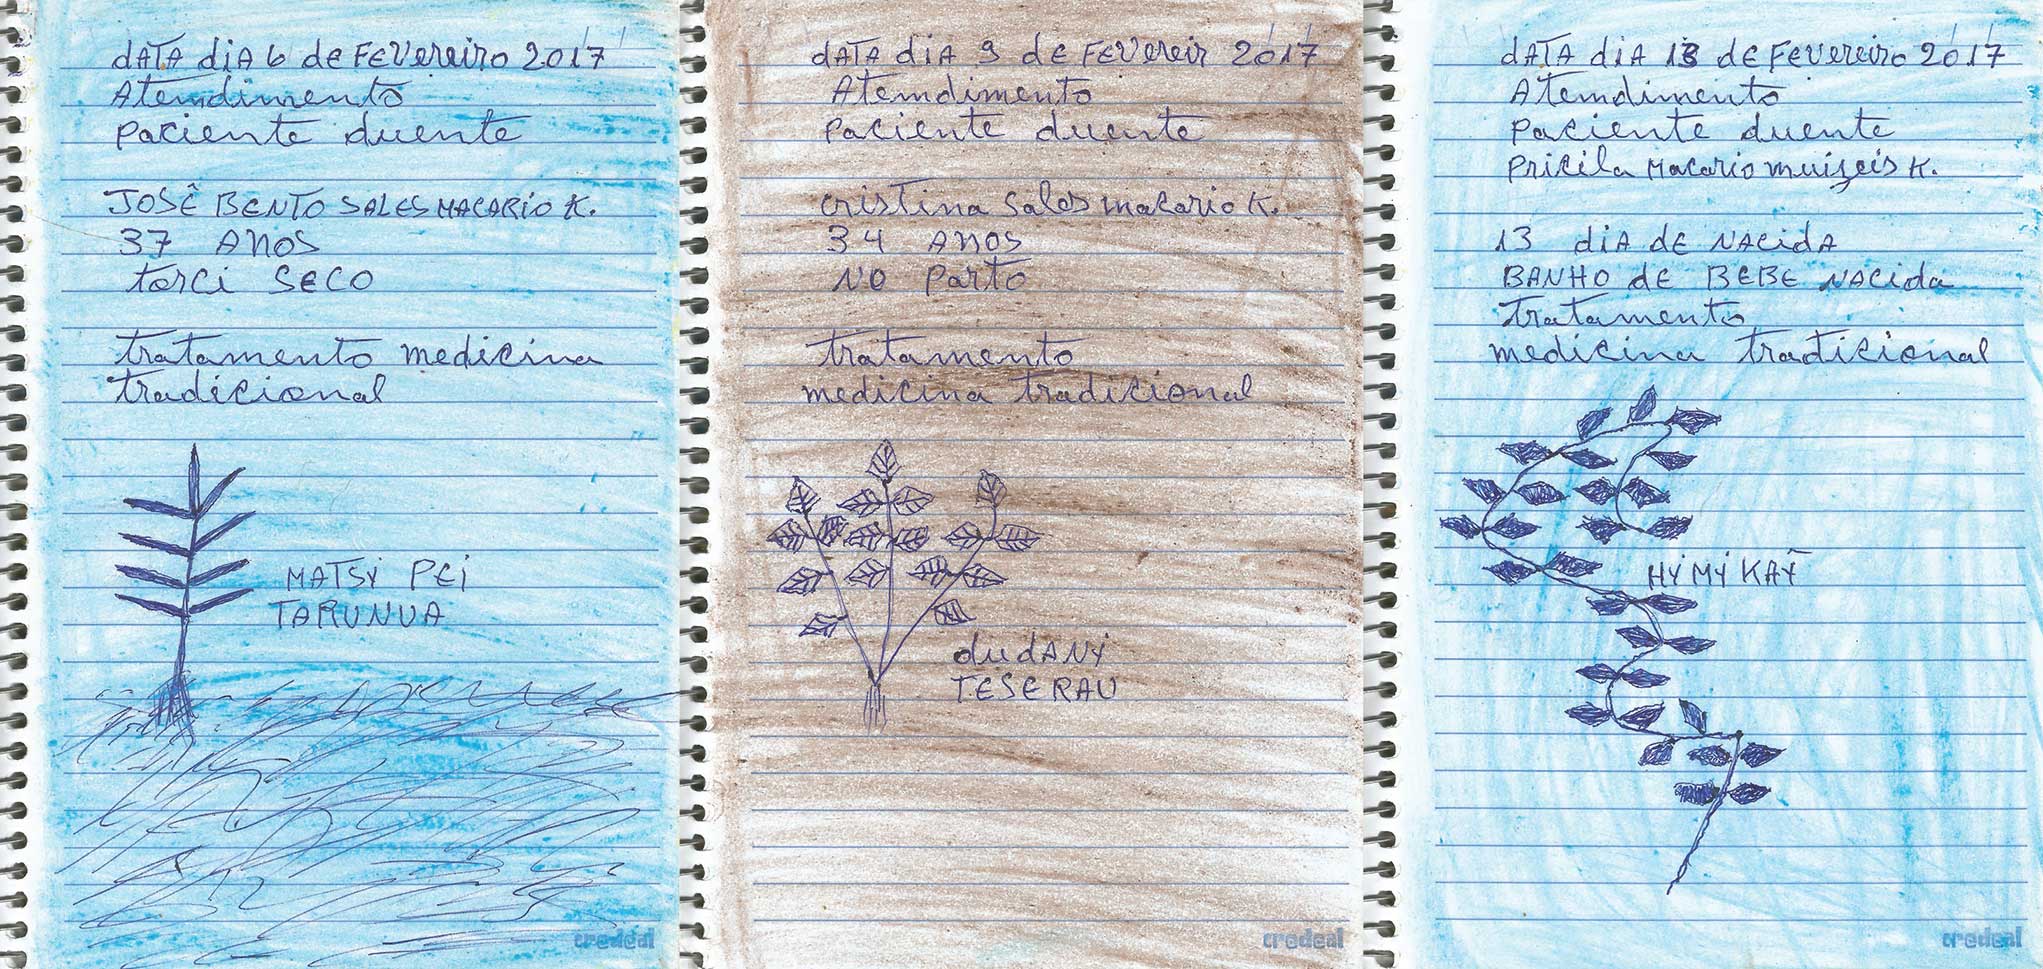 dATA diA 6 de FEVereiro 2017
Atemdimento
paciente duente
JOSÊ BENTO SALES MACARIO K.
37 ANOS
torci SECO
tratamento medicina
tradicional
MATSY PEI
TARUNUA
credeal
dATA diA 9 dE FEVereir 2017
Atemdimento
paciente duente
cristina Sales macario K.
34 ANOS
NO parto
tratamento
medicina tradicional
dudANY
TESERAU
credeal
dATA diA 13 dE FEVereiro 2017
Atemdimento
paciente duente
pricila Macario K.
13 diA dE NACidA
BANHO dE BEBE NACida
tratamento
medicina tradicional
HYMY KAỸ
credeal